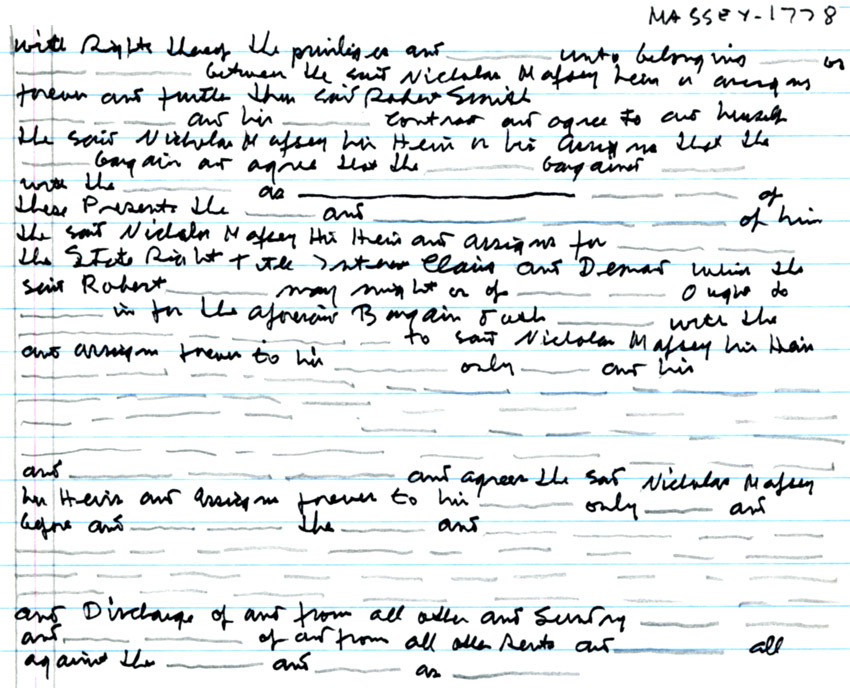 MASSEY-1778
with Rights thereof the privileges and ____ ____ unto belonging ____ or
____ ____ between the said Nicholas Massey heirs or assigns
forever and further then said Robert Smith
____ ____ and his ____ contract and agree to and himself
the said Nicholas Massey his Heirs or his Assigns that the
____ bargain and agree that the ____ bargained ____
with the ____ as ____ of
these Presents the ____ and ____ ____ of him
the said Nicholas Massey His Heirs and assigns for ____ ____
the State Right & title Interest Claim and Demand which the
said Robert ____ may might or of ____ ____ Ought to
____ in for the aforesaid Bargain ____ with the
____ ____ ____ to said Nicholas Massey his Heirs
and assigns forever to his ____ only ____ and his
and ____ ____ ____ and agrees the said Nicholas Massey
his Heirs and Assigns forever to his ____ only ____ and
before and ____ ____ the ____ and ____
and Discharge of and from all other and Sundry ____ ____
and ____ ____ of and from all other Rents and ____ all
against the ____ and ____ as ____